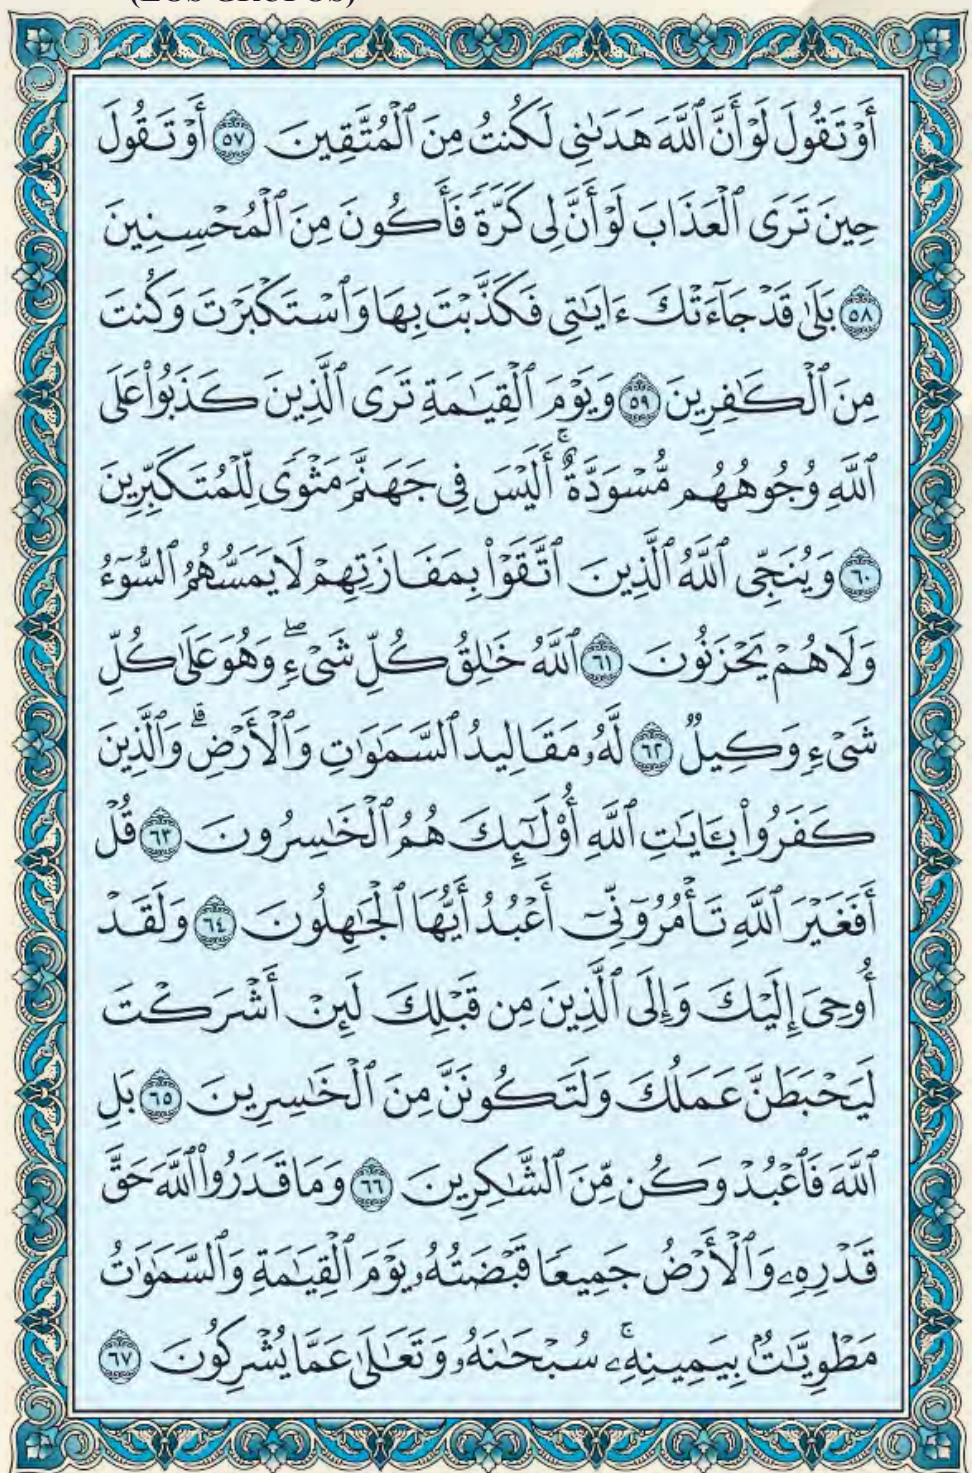 (LOS GRUPOS)
أَوْ تَقُولَ لَوْ أَنَّ ٱللَّهَ هَدَىٰنِى لَكُنتُ مِنَ ٱلْمُتَّقِينَ ٥٧ أَوْ تَقُولَ
حِينَ تَرَى ٱلْعَذَابَ لَوْ أَنَّ لِى كَرَّةً فَأَكُونَ مِنَ ٱلْمُحْسِنِينَ
٥٨ بَلَىٰ قَدْ جَآءَتْكَ ءَايَـٰتِى فَكَذَّبْتَ بِهَا وَٱسْتَكْبَرْتَ وَكُنتَ
مِنَ ٱلْكَـٰفِرِينَ ٥٩ وَيَوْمَ ٱلْقِيَـٰمَةِ تَرَى ٱلَّذِينَ كَذَبُوا۟ عَلَى
ٱللَّهِ وُجُوهُهُم مُّسْوَدَّةٌ ۚ أَلَيْسَ فِى جَهَنَّمَ مَثْوًى لِّلْمُتَكَبِّرِينَ
٦٠ وَيُنَجِّى ٱللَّهُ ٱلَّذِينَ ٱتَّقَوْا۟ بِمَفَازَتِهِمْ لَا يَمَسُّهُمُ ٱلسُّوٓءُ
وَلَا هُمْ يَحْزَنُونَ ٦١ ٱللَّهُ خَـٰلِقُ كُلِّ شَىْءٍ ۖ وَهُوَ عَلَىٰ كُلِّ
شَىْءٍ وَكِيلٌ ٦٢ لَّهُۥ مَقَالِيدُ ٱلسَّمَـٰوَٰتِ وَٱلْأَرْضِ ۗ وَٱلَّذِينَ
كَفَرُوا۟ بِـَٔايَـٰتِ ٱللَّهِ أُو۟لَـٰٓئِكَ هُمُ ٱلْخَـٰسِرُونَ ٦٣ قُلْ
أَفَغَيْرَ ٱللَّهِ تَأْمُرُوٓنِّىٓ أَعْبُدُ أَيُّهَا ٱلْجَـٰهِلُونَ ٦٤ وَلَقَدْ
أُوحِىَ إِلَيْكَ وَإِلَى ٱلَّذِينَ مِن قَبْلِكَ لَئِنْ أَشْرَكْتَ
لَيَحْبَطَنَّ عَمَلُكَ وَلَتَكُونَنَّ مِنَ ٱلْخَـٰسِرِينَ ٦٥ بَلِ
ٱللَّهَ فَٱعْبُدْ وَكُن مِّنَ ٱلشَّـٰكِرِينَ ٦٦ وَمَا قَدَرُوا۟ ٱللَّهَ حَقَّ
قَدْرِهِۦ وَٱلْأَرْضُ جَمِيعًا قَبْضَتُهُۥ يَوْمَ ٱلْقِيَـٰمَةِ وَٱلسَّمَـٰوَٰتُ
مَطْوِيَّـٰتٌۢ بِيَمِينِهِۦ ۚ سُبْحَـٰنَهُۥ وَتَعَـٰلَىٰ عَمَّا يُشْرِكُونَ ٦٧